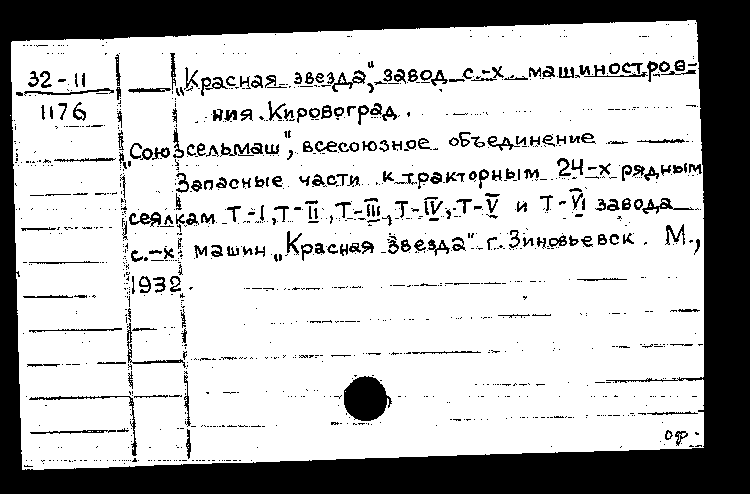 32-11
1176
„Красная звезда", завод с.-х. машинострое-
ния. Кировоград.
„Союзсельмаш", всесоюзное объединение
Запасные части к тракторным 24-х рядным
сеялкам Т-I, Т-II, Т-III, Т-IV, Т-V и Т-VI завода
с.-х. машин „Красная звезда" г. Зиновьевск. М.,
1932.